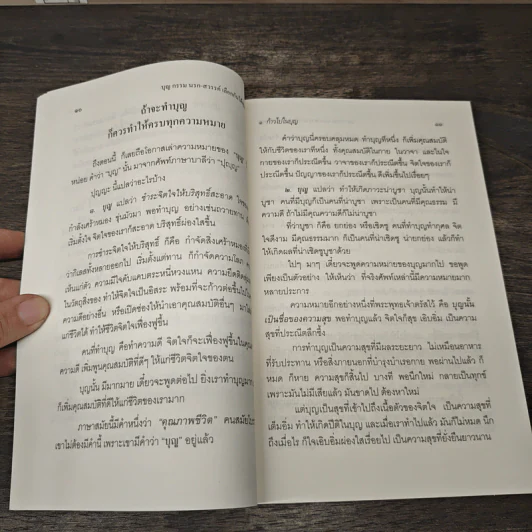 ๑๐
บุญ กรรม นรก-สวรรค์ เลือกกันได้
ถ้าจะทำบุญ
ก็ควรทำให้ครบทุกความหมาย
ถึงตอนนี้ ก็เลยถือโอกาสเล่าความหมายของ "บุญ"
หน่อย คำว่า "บุญ" นั้น มาจากศัพท์ภาษาบาลีว่า "ปุญฺญ"
ปุญญะ นี้แปลว่าอะไรบ้าง
๑. บุญ แปลว่า ชำระจิตใจให้บริสุทธิ์สะอาด
กำลังเศร้าหมอง ขุ่นมัวมา พอทำบุญ อย่างเช่นถวายทาน
เริ่มตั้งใจ จิตใจของเราก็สะอาด บริสุทธิ์ผ่องใสขึ้น
การชำระจิตใจให้บริสุทธิ์ ก็คือ กำจัดสิ่งเศร้าหมอง
ว่ากิเลสทั้งหลายออกไป เริ่มตั้งแต่ทาน ก็กำจัดความโลภ
เห็นแก่ตัว ความมีใจคับแคบตระหนี่หวงแหน ความยึดติด
ในวัตถุสิ่งของ ทำให้จิตใจเป็นอิสระ พร้อมที่จะก้าวต่อขึ้นไป
ความดีอย่างอื่น หรือเปิดช่องให้นำเอาคุณสมบัติอื่นๆ มา
แก่ชีวิตได้ ทำให้ชีวิตจิตใจเฟื่องฟูขึ้น
คนที่ทำบุญ คือทำความดี จิตใจก็จะเฟื่องฟูขึ้นใน
ความดี เพิ่มพูนคุณสมบัติที่ดีๆ ให้แก่ชีวิตจิตใจของตน
บุญนั้น มีมากมาย เดี๋ยวจะพูดต่อไป ยิ่งเราทำบุญมาก
ก็เพิ่มคุณสมบัติที่ดีให้แก่ชีวิตของเรามาก
ภาษาสมัยนี้มีคำหนึ่งว่า "คุณภาพชีวิต" คนสมัย
เขาไม่ต้องมีคำนี้ เพราะเขามีคำว่า "บุญ" อยู่แล้ว
๑ ก้าวไปในบุญ
๑๑
คำว่าบุญนี้ครอบคลุมหมด ทำบุญทีหนึ่ง ก็เพิ่มคุณสมบัติ
ให้กับชีวิตของเราทีหนึ่ง ทั้งคุณสมบัติในกาย ในวาจา และในใจ
กายของเราก็ประณีตขึ้น วาจาของเราก็ประณีตขึ้น จิตใจของเราก็
ประณีตขึ้น ปัญญาของเราก็ประณีตขึ้น ดีเพิ่มขึ้นไปเรื่อยๆ
๒. บุญ แปลว่า ทำให้เกิดภาวะน่าบูชา บุญนั้นทำให้น่า
บูชา คนที่มีบุญก็เป็นคนที่น่าบูชา เพราะเป็นคนที่มีคุณธรรม มี
ความดี ถ้าไม่มีคุณความดีก็ไม่น่าบูชา
ที่ว่าบูชา ก็คือ ยกย่อง หรือเชิดชู คนที่ทำบุญทำกุศล จิต
ใจดีงาม มีคุณธรรมมาก ก็เป็นคนที่น่าเชิดชู น่ายกย่อง แล้วก็ทำ
ให้เกิดผลที่น่าเชิดชูบูชาด้วย
ไปๆ มาๆ เดี๋ยวจะพูดความหมายของบุญมากไป ขอพูด
เพียงเป็นตัวอย่าง ให้เห็นว่า ที่จริงศัพท์เหล่านี้มีความหมายมาก
หลายประการ
ความหมายอีกอย่างหนึ่งที่พระพุทธเจ้าตรัสไว้ คือ บุญนั้น
เป็นชื่อของความสุข พอทำบุญแล้ว จิตใจก็สุข เอิบอิ่ม เป็นความ
สุขที่ประณีตลึกซึ้ง
การทำบุญเป็นความสุขที่มีผลระยะยาว ไม่เหมือนอาหาร
ที่รับประทาน หรือสิ่งภายนอกที่บำรุงบำเรอกาย พอผ่านไปแล้ว ก็
หมด ก็หาย ความสุขก็สิ้นไป บางที พอนึกใหม่ กลายเป็นทุกข์
เพราะมันไม่มีเสียแล้ว มันขาดไป ต้องหาใหม่
แต่บุญเป็นสุขที่เข้าไปถึงเนื้อตัวของจิตใจ เป็นความสุขที่
เต็มอิ่ม ทำให้เกิดปีติในบุญ และเมื่อเราทำไปแล้ว มันก็ไม่หมด นึก
ถึงเมื่อไร ก็ใจเอิบอิ่มผ่องใสเรื่อยไป เป็นความสุขที่ยั่งยืนยาวนาน